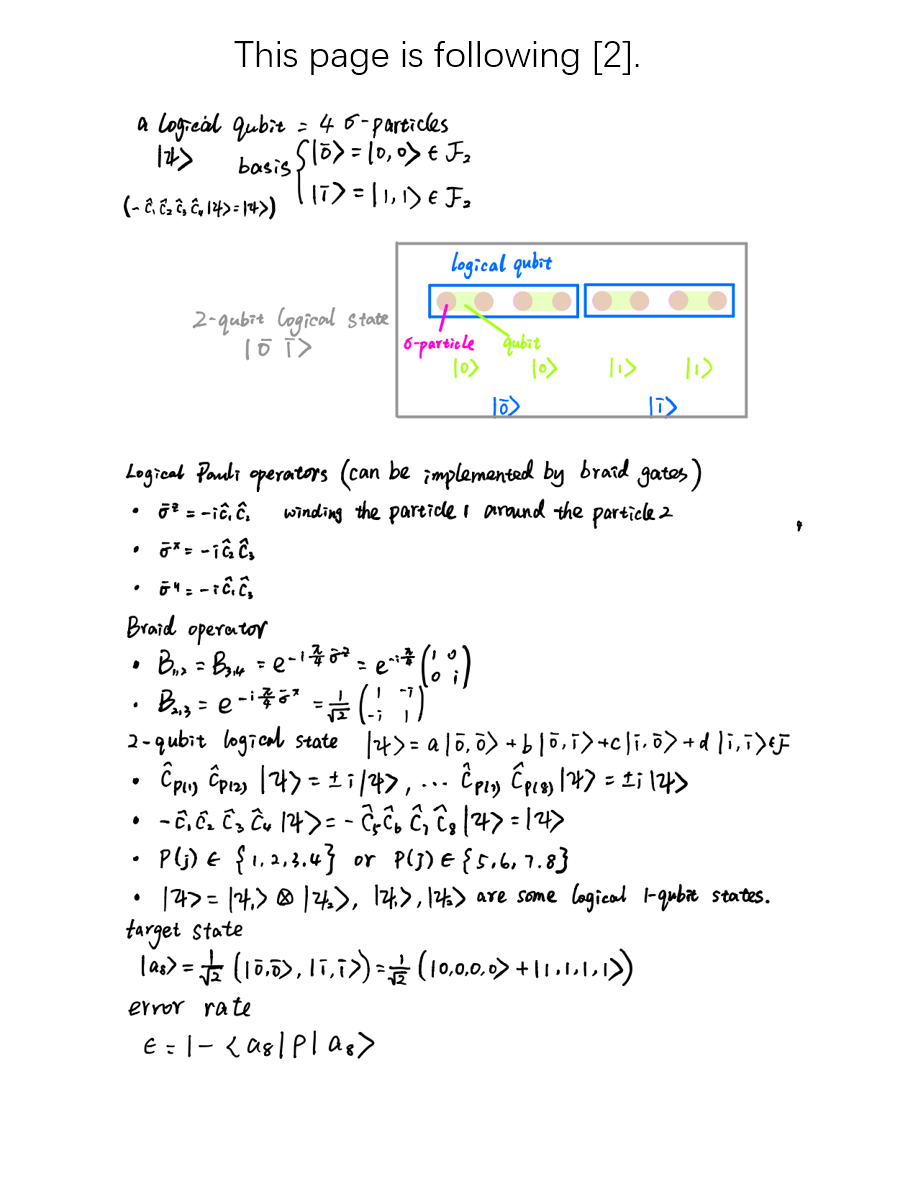 This page is following [2].
a logical qubit = 4 σ-particles
|ψ> basis { |0̄> = |0,0> ∈ F₂
|1̄> = |1,1> ∈ F₂
(-ĉ₁ĉ₂ĉ₃ĉ₄|ψ>=|ψ>)
logical qubit
2-qubit logical state
|0̄ 1̄>
σ-particle qubit
|0> |0> |1> |1>
|0̄> |1̄>
Logical Pauli operators (can be implemented by braid gates)
• σ̄ᶻ = -iĉ₁ĉ₂ winding the particle 1 around the particle 2
• σ̄ˣ = -iĉ₂ĉ₃
• σ̄ʸ = -iĉ₁ĉ₃
Braid operator
• B₁,₂ = B₃,₄ = e^{-i π/4 σ̄ᶻ} = e^{-i π/4} (1 0 / 0 i)
• B₂,₃ = e^{-i π/4 σ̄ˣ} = 1/√2 (1 -i / -i 1)
2-qubit logical state |ψ> = a|0̄,0̄> + b|0̄,1̄> + c|1̄,0̄> + d|1̄,1̄> ∈ F
• Ĉ_P(1) Ĉ_P(2) |ψ> = ±i|ψ>, ... Ĉ_P(7) Ĉ_P(8) |ψ> = ±i|ψ>
• -ĉ₁ĉ₂ĉ₃ĉ₄|ψ> = -ĉ₅ĉ₆ĉ₇ĉ₈|ψ> = |ψ>
• P(j) ∈ {1,2,3,4} or P(j) ∈ {5,6,7,8}
• |ψ> = |ψ₁> ⊗ |ψ₂>, |ψ₁>,|ψ₂> are some logical 1-qubit states.
target state
|a₈> = 1/√2 (|0̄,0̄>, |1̄,1̄>) = 1/√2 (|0,0,0,0> + |1,1,1,1>)
error rate
ϵ = 1 - <a₈|ρ|a₈>